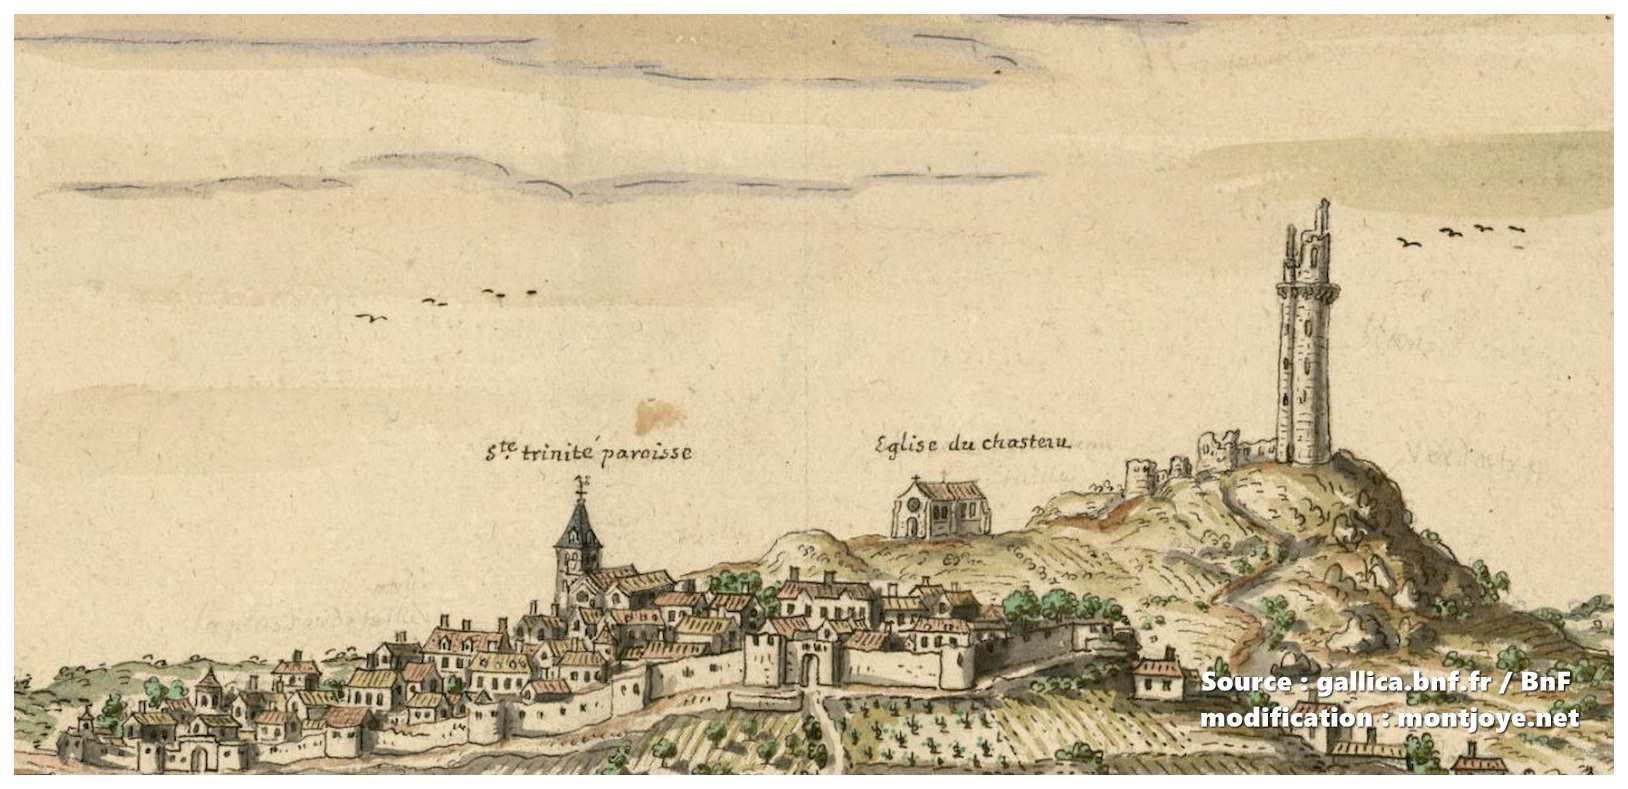 Ste trinité paroisse
Eglise du chasteau
Source : gallica.bnf.fr / BnF
modification : montjoye.net